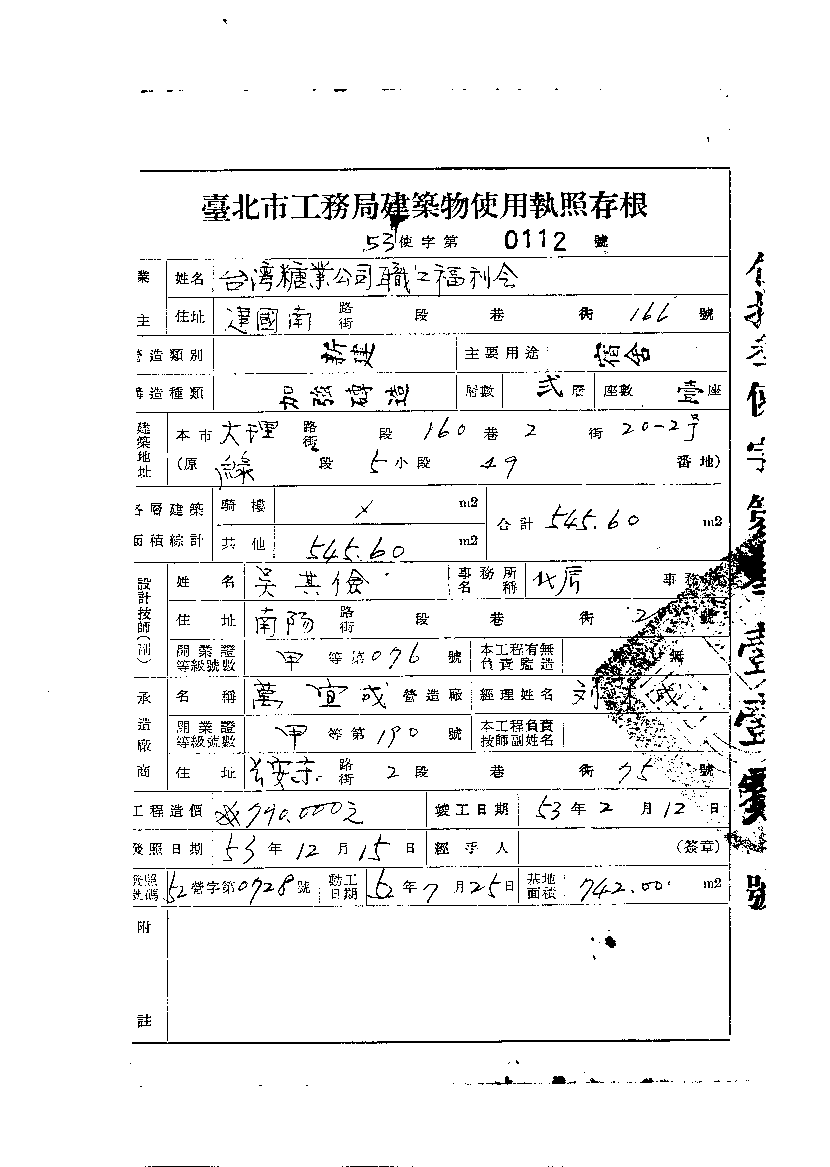 臺北市工務局建築物使用執照存根
53使字第 0112 號
業主 姓名 台湾糖業公司職工福利会
住址 建國南 路街 段 巷 街 166 號
營造類別 新建 主要用途 宿舍
構造種類 加強磚造 層數 弍層 座數 壹座
建築地址 本市 大理 路街 段 160 巷 2 街 20-2号
(原 綠 段 5 小段 49 番地)
各層建築面積綜計 騎樓 × m2 合計 545.60 m2
共他 545.60 m2
設計技師(副) 姓名 吳其儉 事務所名稱 事務
住址 南陽 路街 段 巷 街 2 號
開業證等級號數 甲 等第 076 號 本工程有無負責監造 無
承造廠商 名稱 萬宜成 營造廠 經理姓名 刘 成
開業證等級號數 甲 等第 190 號 本工程負責技師副姓名
住址 路街 2 段 巷 街 75 號
工程造價 790.000元 竣工日期 53 年 2 月 12 日
發照日期 53 年 12 月 15 日 經手人 (簽章)
號碼 52 營字第 0728 號 動工日期 52 年 7 月 25 日 基地面積 742.00 m2
附註
字 壹壹 號